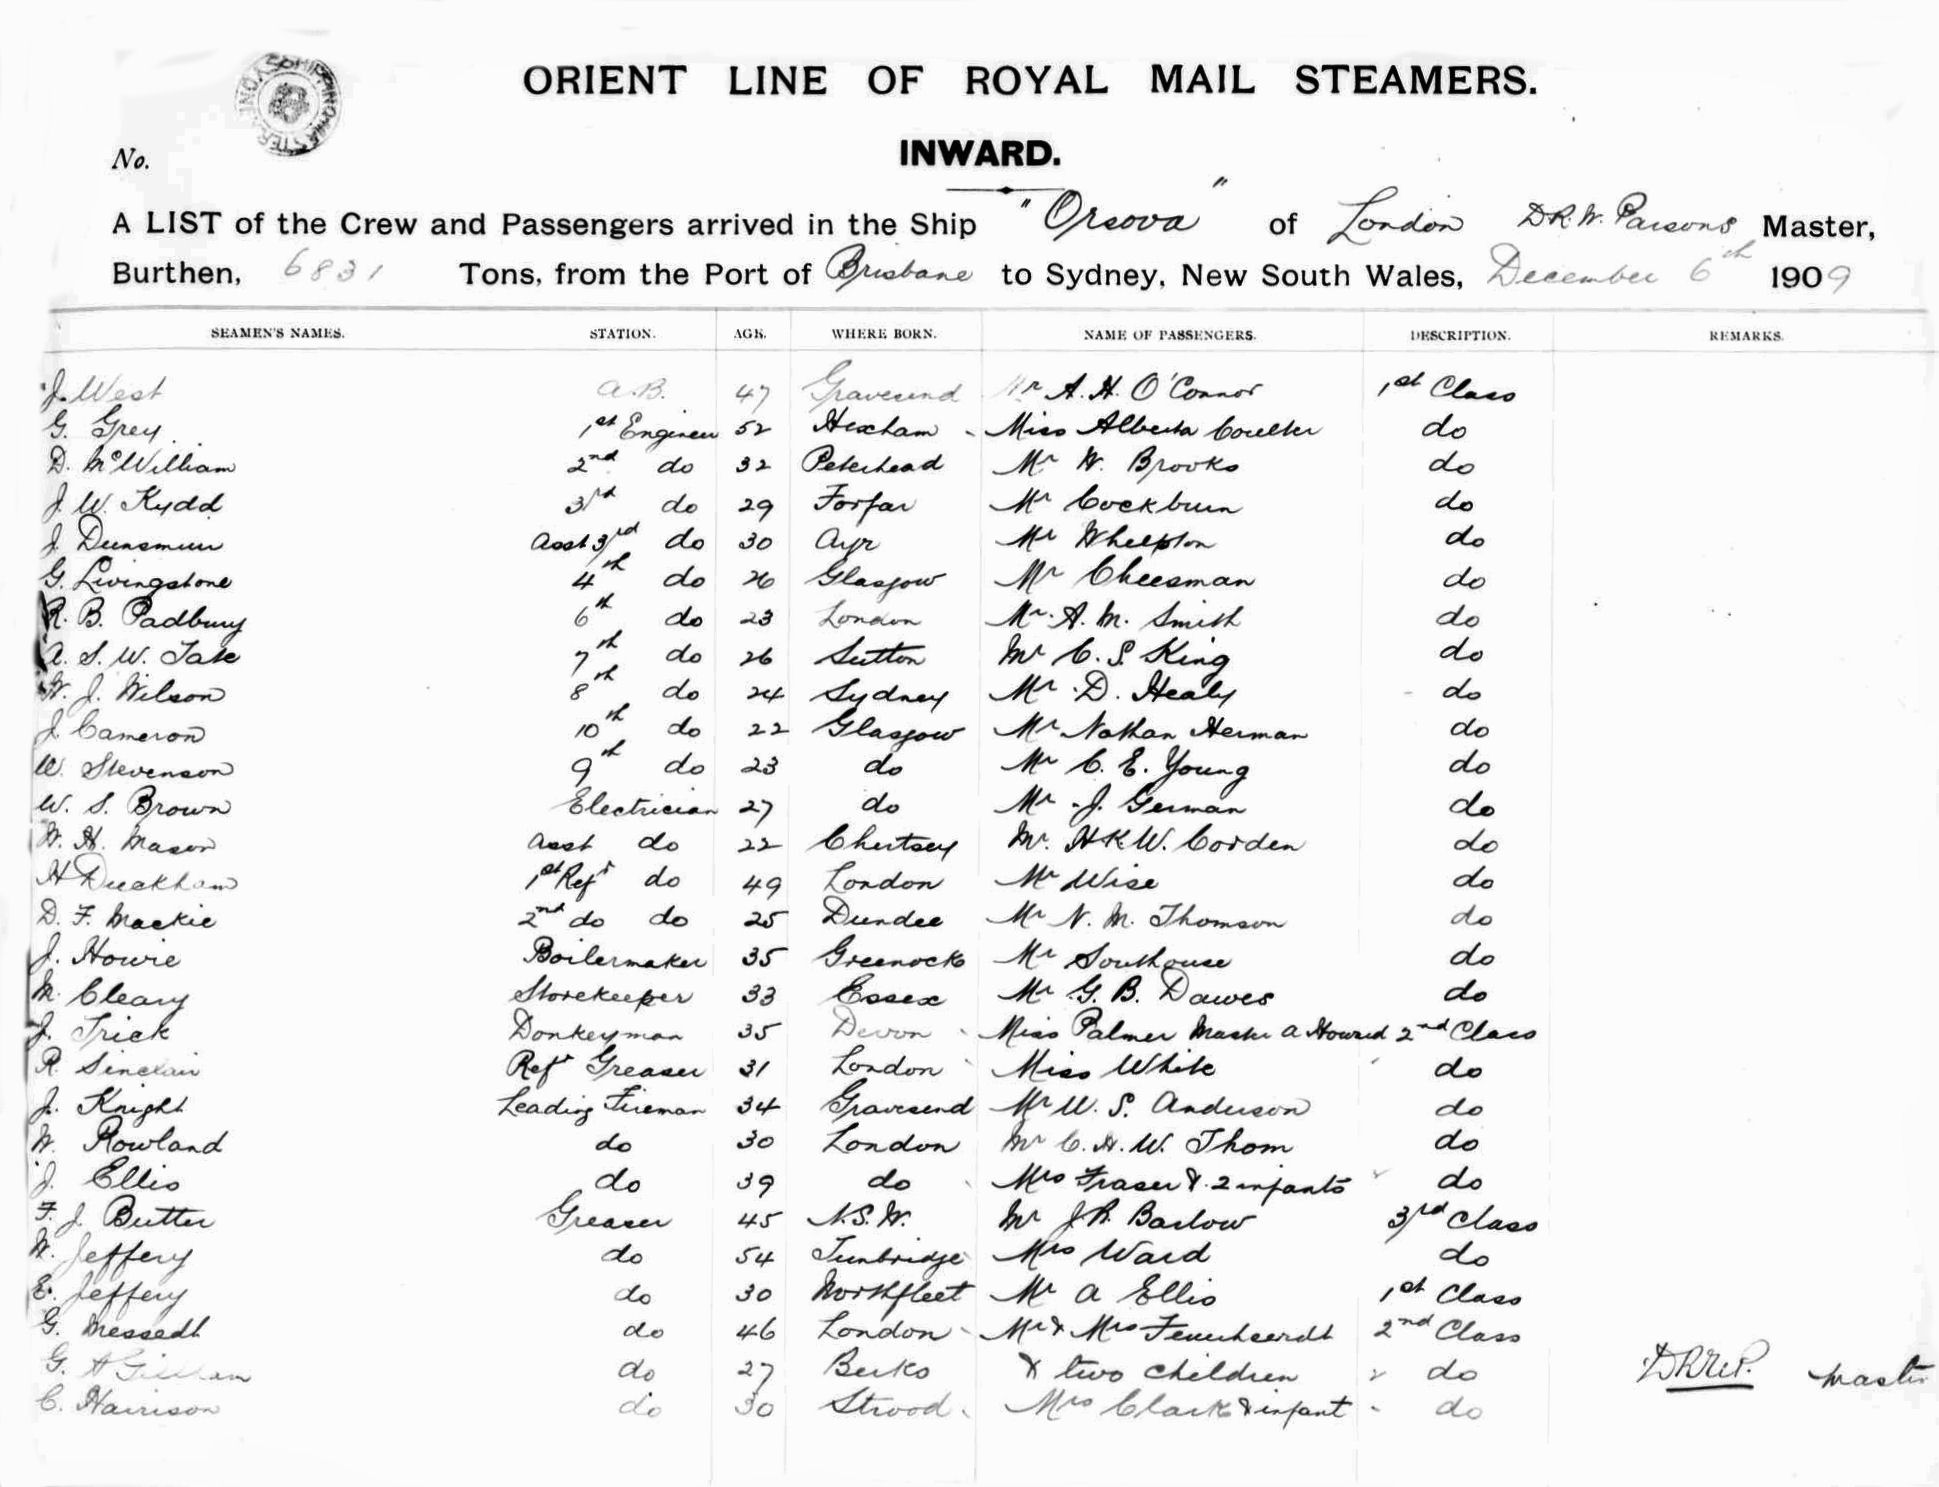 SHIPPING MASTER SYDNEY
ORIENT LINE OF ROYAL MAIL STEAMERS.
No.
INWARD.
A LIST of the Crew and Passengers arrived in the Ship "Orsova" of London D.R.W. Parsons Master,
Burthen, 6831 Tons, from the Port of Brisbane to Sydney, New South Wales, December 6th 1909
SEAMEN'S NAMES. STATION. AGE. WHERE BORN. NAME OF PASSENGERS. DESCRIPTION. REMARKS.
J. West A.B. 47 Gravesend Mr A. H. O'Connor 1st Class
G. Grey 1st Engineer 52 Hexham - Miss Alberta Coulter do
D. McWilliam 2nd do 32 Peterhead Mr W. Brooks do
J. W. Kydd 3rd do 29 Forfar Mr Cockburn do
J Dunsmuir Asst 3rd do 30 Ayr Mr Whelpton do
G. Livingstone 4th do 26 Glasgow Mr Cheesman do
R. B. Padbury 6th do 23 London Mr. A. M. Smith do
A. S. W. Tate 7th do 26 Sutton Mr C. S. King do
W. J. Wilson 8th do 24 Sydney Mr D. Healy do
J Cameron 10th do 22 Glasgow Mr Nathan Herman do
W. Stevenson 9th do 23 do Mr C. E. Young do
W. S. Brown Electrician 27 do Mr J. German do
W. H. Mason Asst do 22 Chertsey Mr. H.K.W. Corden do
H Duckham 1st Refr do 49 London Mr Wise do
D. F. Mackie 2nd do do 25 Dundee Mr N. M. Thomson do
J. Howie Boilermaker 35 Greenock Mr Southouse do
M. Cleary Storekeeper 33 Essex Mr G. B. Dawes do
J. Trick Donkeyman 35 Devon - Miss Palmer Master A Howard 2nd Class
R. Sinclair Refr Greaser 31 London Miss White do
J. Knight Leading Fireman 34 Gravesend Mr W. S. Anderson do
W. Rowland do 30 London Mr C. H. W. Thom do
J. Ellis do 39 do Mrs Fraser & 2 infants do
F. J. Butter Greaser 45 N.S.W. Mr J R. Barlow 3rd Class
W. Jeffery do 54 Tunbridge Mrs Ward do
E. Jeffery do 30 Northfleet Mr A Ellis 1st Class
G. Messedt do 46 London - Mr & Mrs Feuerheerdt 2nd Class
G. A do 27 Berks & two children do D.R.W.P. Master
C. Harrison do 30 Strood - Mrs Clark & infant - do